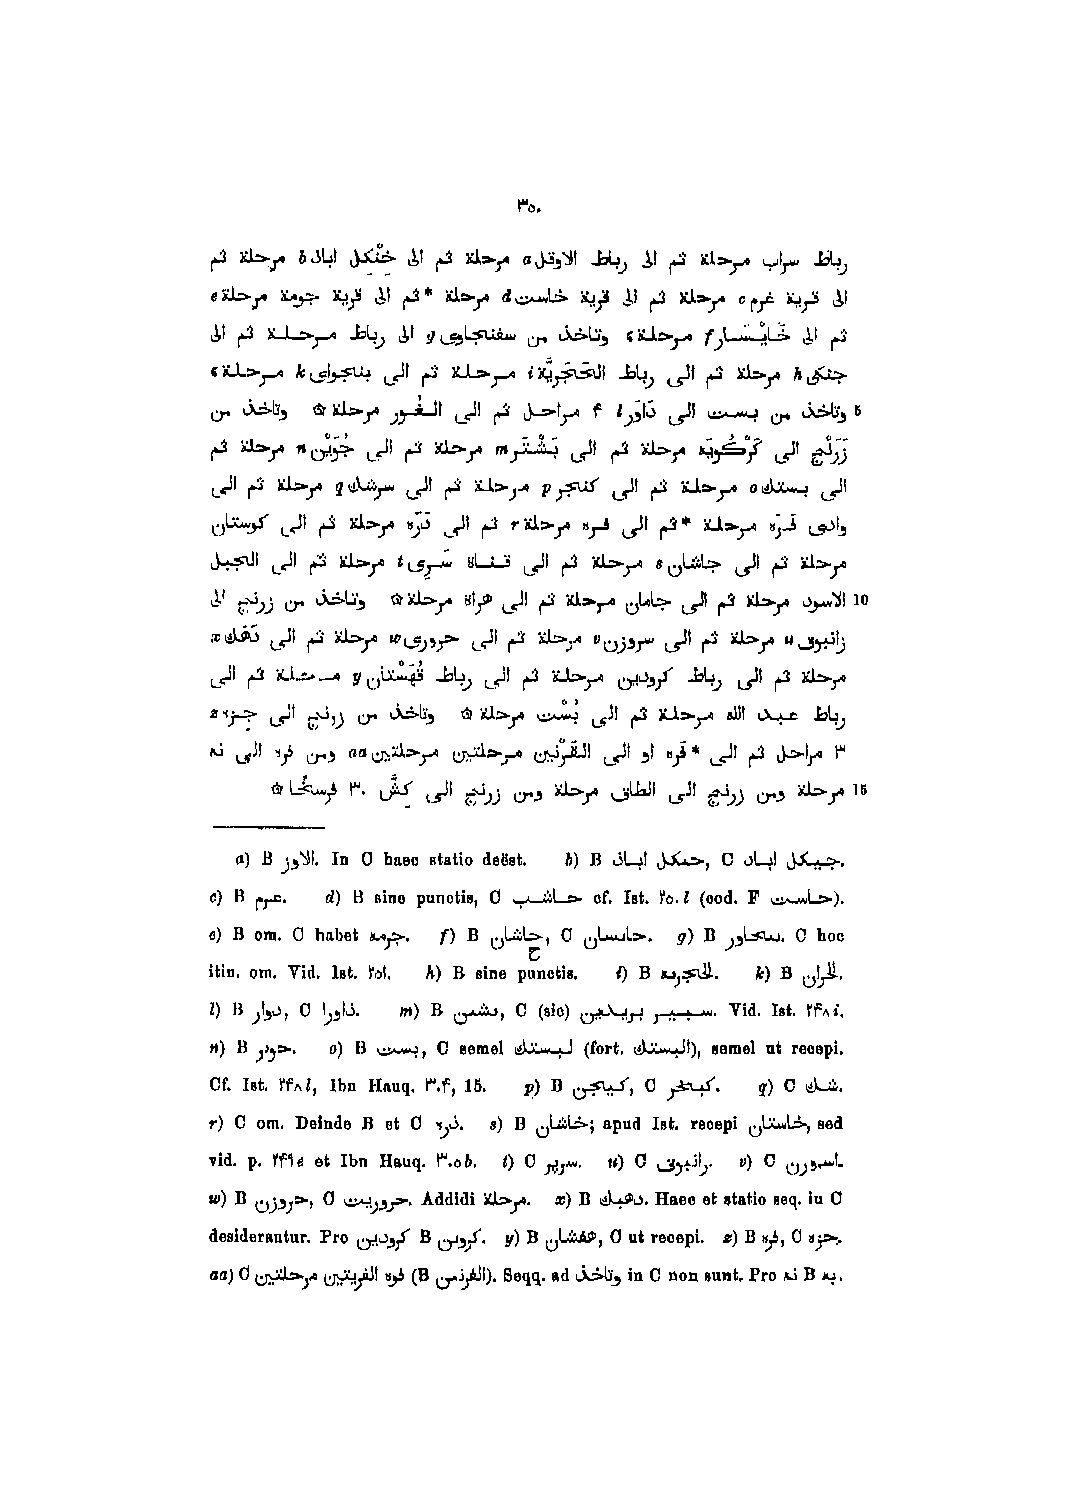 ٣٥٠
رباط سراب مرحلة ثم الى رباط الاوقل a مرحلة ثم الى خنكل اباذ b مرحلة ثم
الى قرية غرم c مرحلة ثم الى قرية خاست d مرحلة *ثم الى قرية جومة مرحلة e
ثم الى خايسار f مرحلة، وتاخذ من سفنجاوى g الى رباط مرحلة ثم الى
جنكى h مرحلة ثم الى رباط الحجرية i مرحلة ثم الى بنجواى k مرحلة،
5 وتاخذ من بست الى داور l ۴ مراحل ثم الى الغور مرحلة ۞ وتاخذ من
زَرَنْج الى كَرْكُويَه مرحلة ثم الى بَشْتَر m مرحلة ثم الى جُوَيْن n مرحلة ثم
الى بستك o مرحلة ثم الى كنجر p مرحلة ثم الى سرشك q مرحلة ثم الى
وادى فَرَه مرحلة *ثم الى فره مرحلة r ثم الى دَرَه مرحلة ثم الى كوستان
مرحلة ثم الى جاشان s مرحلة ثم الى قناة سَرِى t مرحلة ثم الى الجبل
10 الاسود مرحلة ثم الى جامان مرحلة ثم الى هراة مرحلة ۞ وتاخذ من زرنج الى
زانبوق u مرحلة ثم الى سروزن v مرحلة ثم الى حرورى w مرحلة ثم الى دَهَك x
مرحلة ثم الى رباط كرودين مرحلة ثم الى رباط قُهَسْتان y مرحلة ثم الى
رباط عبد الله مرحلة ثم الى بُسْت مرحلة ۞ وتاخذ من زرنج الى جزه z
٣ مراحل ثم الى *فره او الى القَرْنَين مرحلتين مرحلتين aa ومن فره الى نه
15 مرحلة ومن زرنج الى الطاق مرحلة ومن زرنج الى كِشّ ٣٠ فرسخًا ۞
a) B الاوز. In C haec statio deëst. b) B حىكل اباذ, C جيكل اباد.
c) B عرم. d) B sine punctis, C حاشب cf. Ist. ٢٥٠ l (cod. F حاست).
e) B om. C habet جرمه. f) B جاشان, C حايسان. g) B سحاور. C hoc
itin. om. Vid. Ist. ٢٥١. h) B sine punctis. i) B الحجريه. k) B الحران.
l) B دوار, C داورا. m) B بشىن, C (sic) سىبىر برىدىن. Vid. Ist. ٢۴٨ i.
n) B حودر. o) B بست, C semel لبستك (fort. البستك), semel ut recepi.
Cf. Ist. ٢۴٨ l, Ibn Hauq. ٣٠۴, 15. p) B كيجن, C كىخر. q) C شك.
r) C om. Deinde B et C دره. s) B خاشان; apud Ist. recepi خاستان, sed
vid. p. ٢۴٩ e et Ibn Hauq. ٣٠٥ b. t) C سرير. u) C رانبوق. v) C اسورن.
w) B حروزن, C حروريت. Addidi مرحلة. x) B دهبك. Haec et statio seq. in C
desiderantur. Pro كرودين B كروىن. y) B هفشان, C ut recepi. z) B فره, C حزه.
aa) C فره القريتين مرحلتين (B القرنىن). Seqq. ad وتاخذ in C non sunt. Pro نه B به.